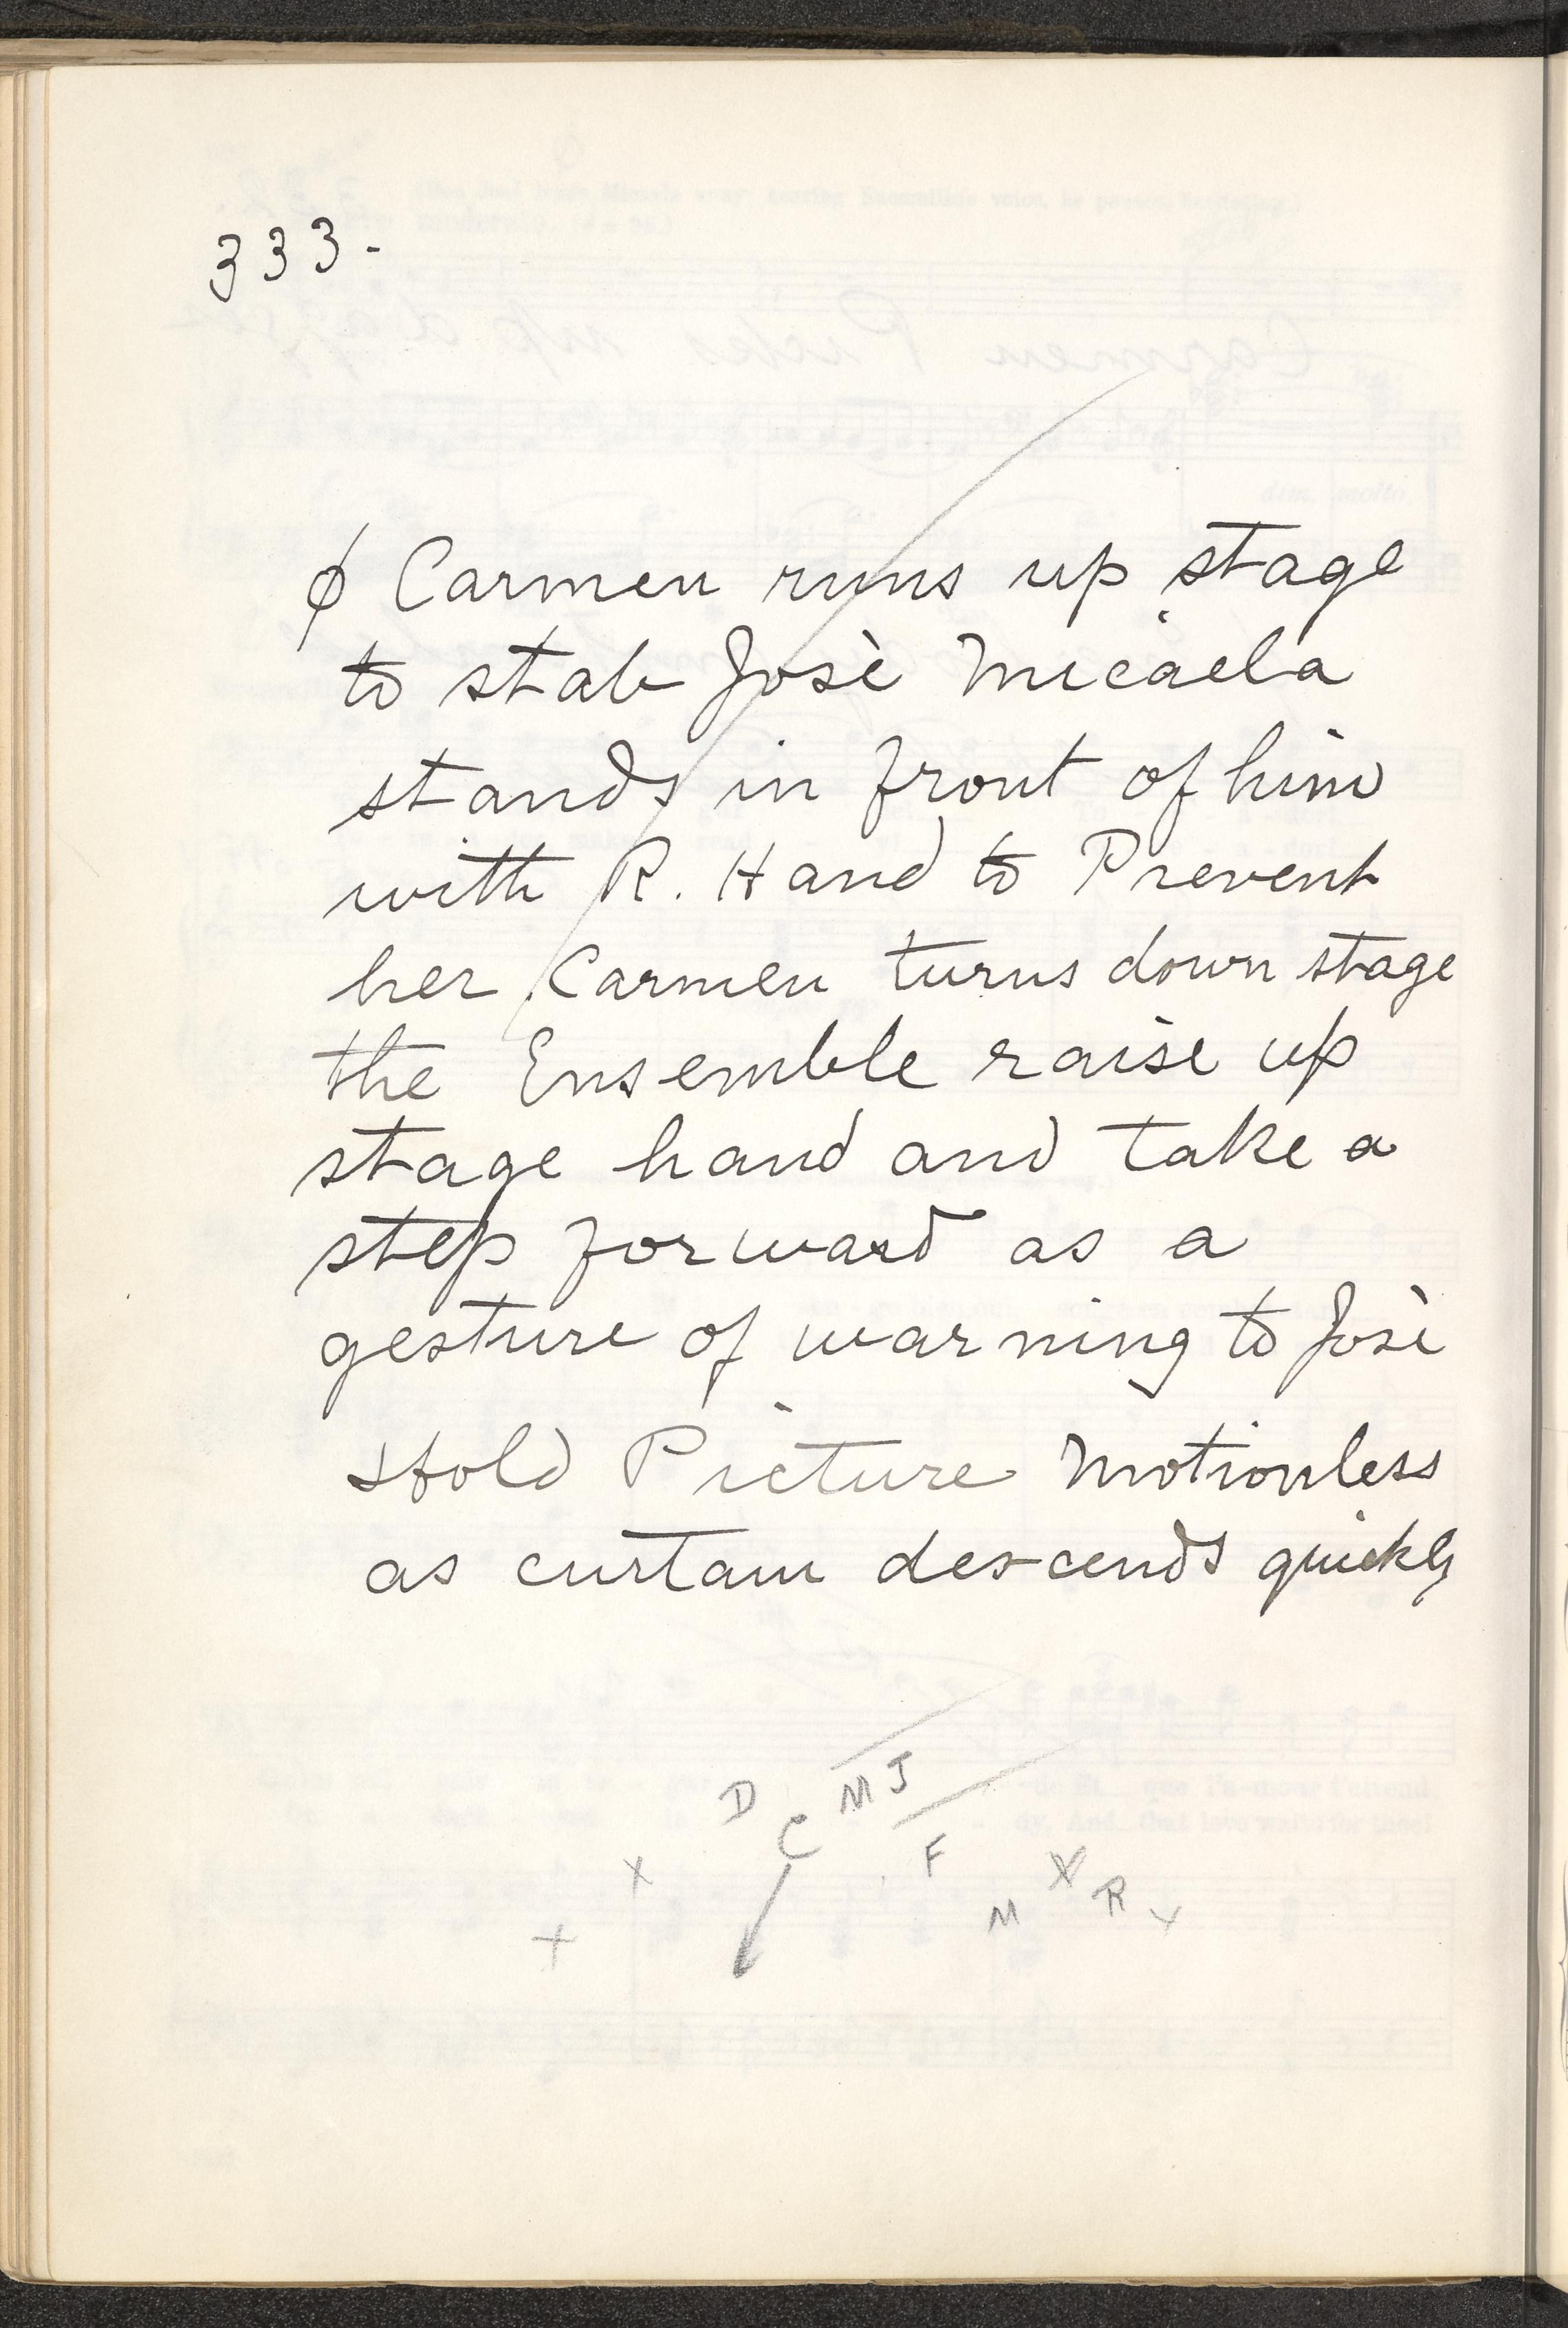 333.
ϕ Carmen runs up stage
to stab Josè Micaela
stands in front of him
with R. Hand to Prevent
her Carmen turns down stage
the Ensemble raise up
stage hand and take a
step forward as a
gesture of warning to Josè
Hold Picture Motionless
as curtain descends quickly
D C M J
F
X X
M R X
X